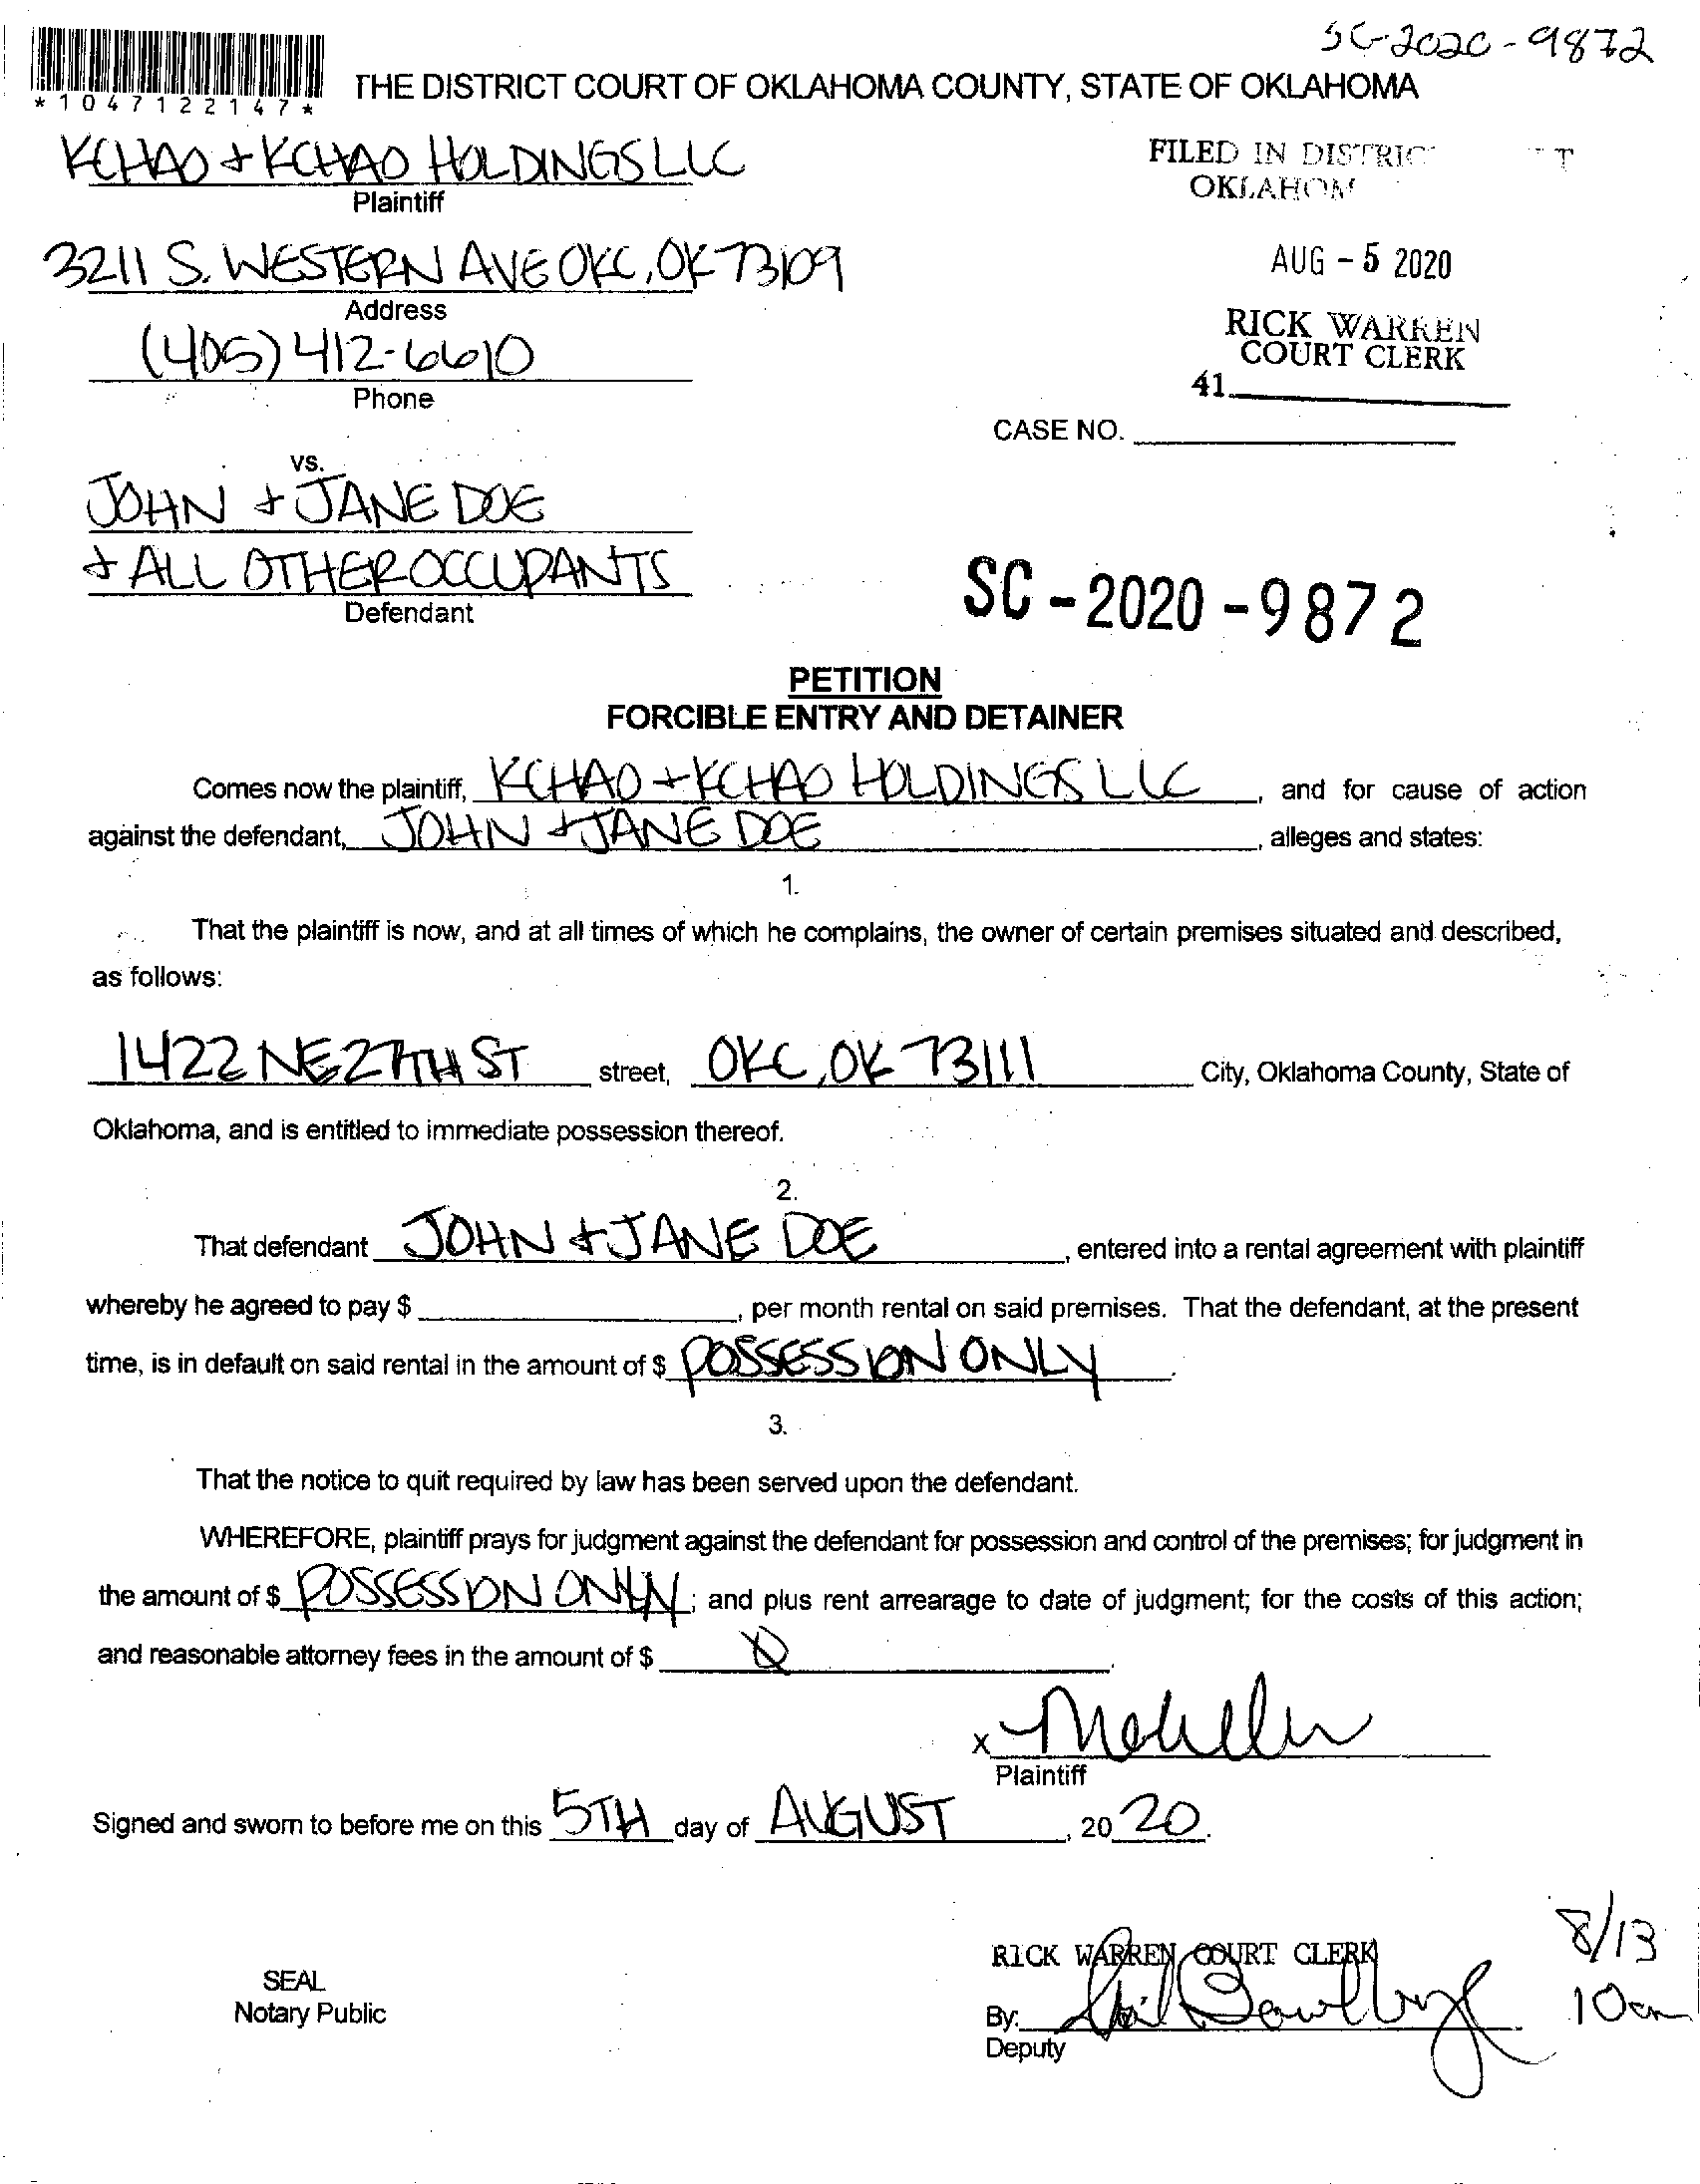 SC-2020-9872
*1047122147*
THE DISTRICT COURT OF OKLAHOMA COUNTY, STATE OF OKLAHOMA
KCHAO + KCHAO HOLDINGS LLC
Plaintiff
FILED IN DISTRIC T
OKLAHOM
3211 S. WESTERN AVE OKC, OK 73109
Address
AUG - 5 2020
(405) 412-6610
Phone
RICK WARREN
COURT CLERK
41
CASE NO.
vs.
JOHN + JANE DOE
+ ALL OTHER OCCUPANTS
Defendant
SC - 2020 - 9872
PETITION
FORCIBLE ENTRY AND DETAINER
Comes now the plaintiff, KCHAO + KCHAO HOLDINGS LLC, and for cause of action
against the defendant, JOHN + JANE DOE, alleges and states:
1.
That the plaintiff is now, and at all times of which he complains, the owner of certain premises situated and described,
as follows:
1422 NE 27TH ST street, OKC, OK 73111 City, Oklahoma County, State of
Oklahoma, and is entitled to immediate possession thereof.
2.
That defendant JOHN + JANE DOE, entered into a rental agreement with plaintiff
whereby he agreed to pay $, per month rental on said premises. That the defendant, at the present
time, is in default on said rental in the amount of $ POSSESSION ONLY.
3.
That the notice to quit required by law has been served upon the defendant.
WHEREFORE, plaintiff prays for judgment against the defendant for possession and control of the premises; for judgment in
the amount of $ POSSESSION ONLY; and plus rent arrearage to date of judgment; for the costs of this action;
and reasonable attorney fees in the amount of $
X
Plaintiff
Signed and sworn to before me on this 5TH day of AUGUST, 20 20.
8/13
10am
RICK WARREN COURT CLERK
SEAL
Notary Public
By:
Deputy